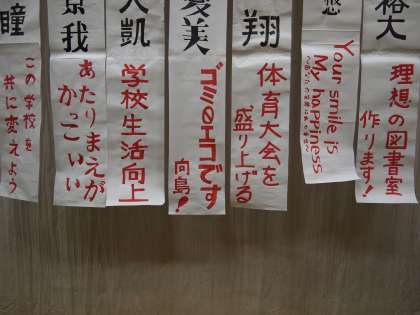 裕大
理想の図書室
作ります!
Your smile is
My happiness
翔
体育大会を
盛り上げる
夏美
ゴミのエコです
向島!
大凱
学校生活向上
京我
あたりまえが
かっこいい
瞳
この学校を
共に変えよう